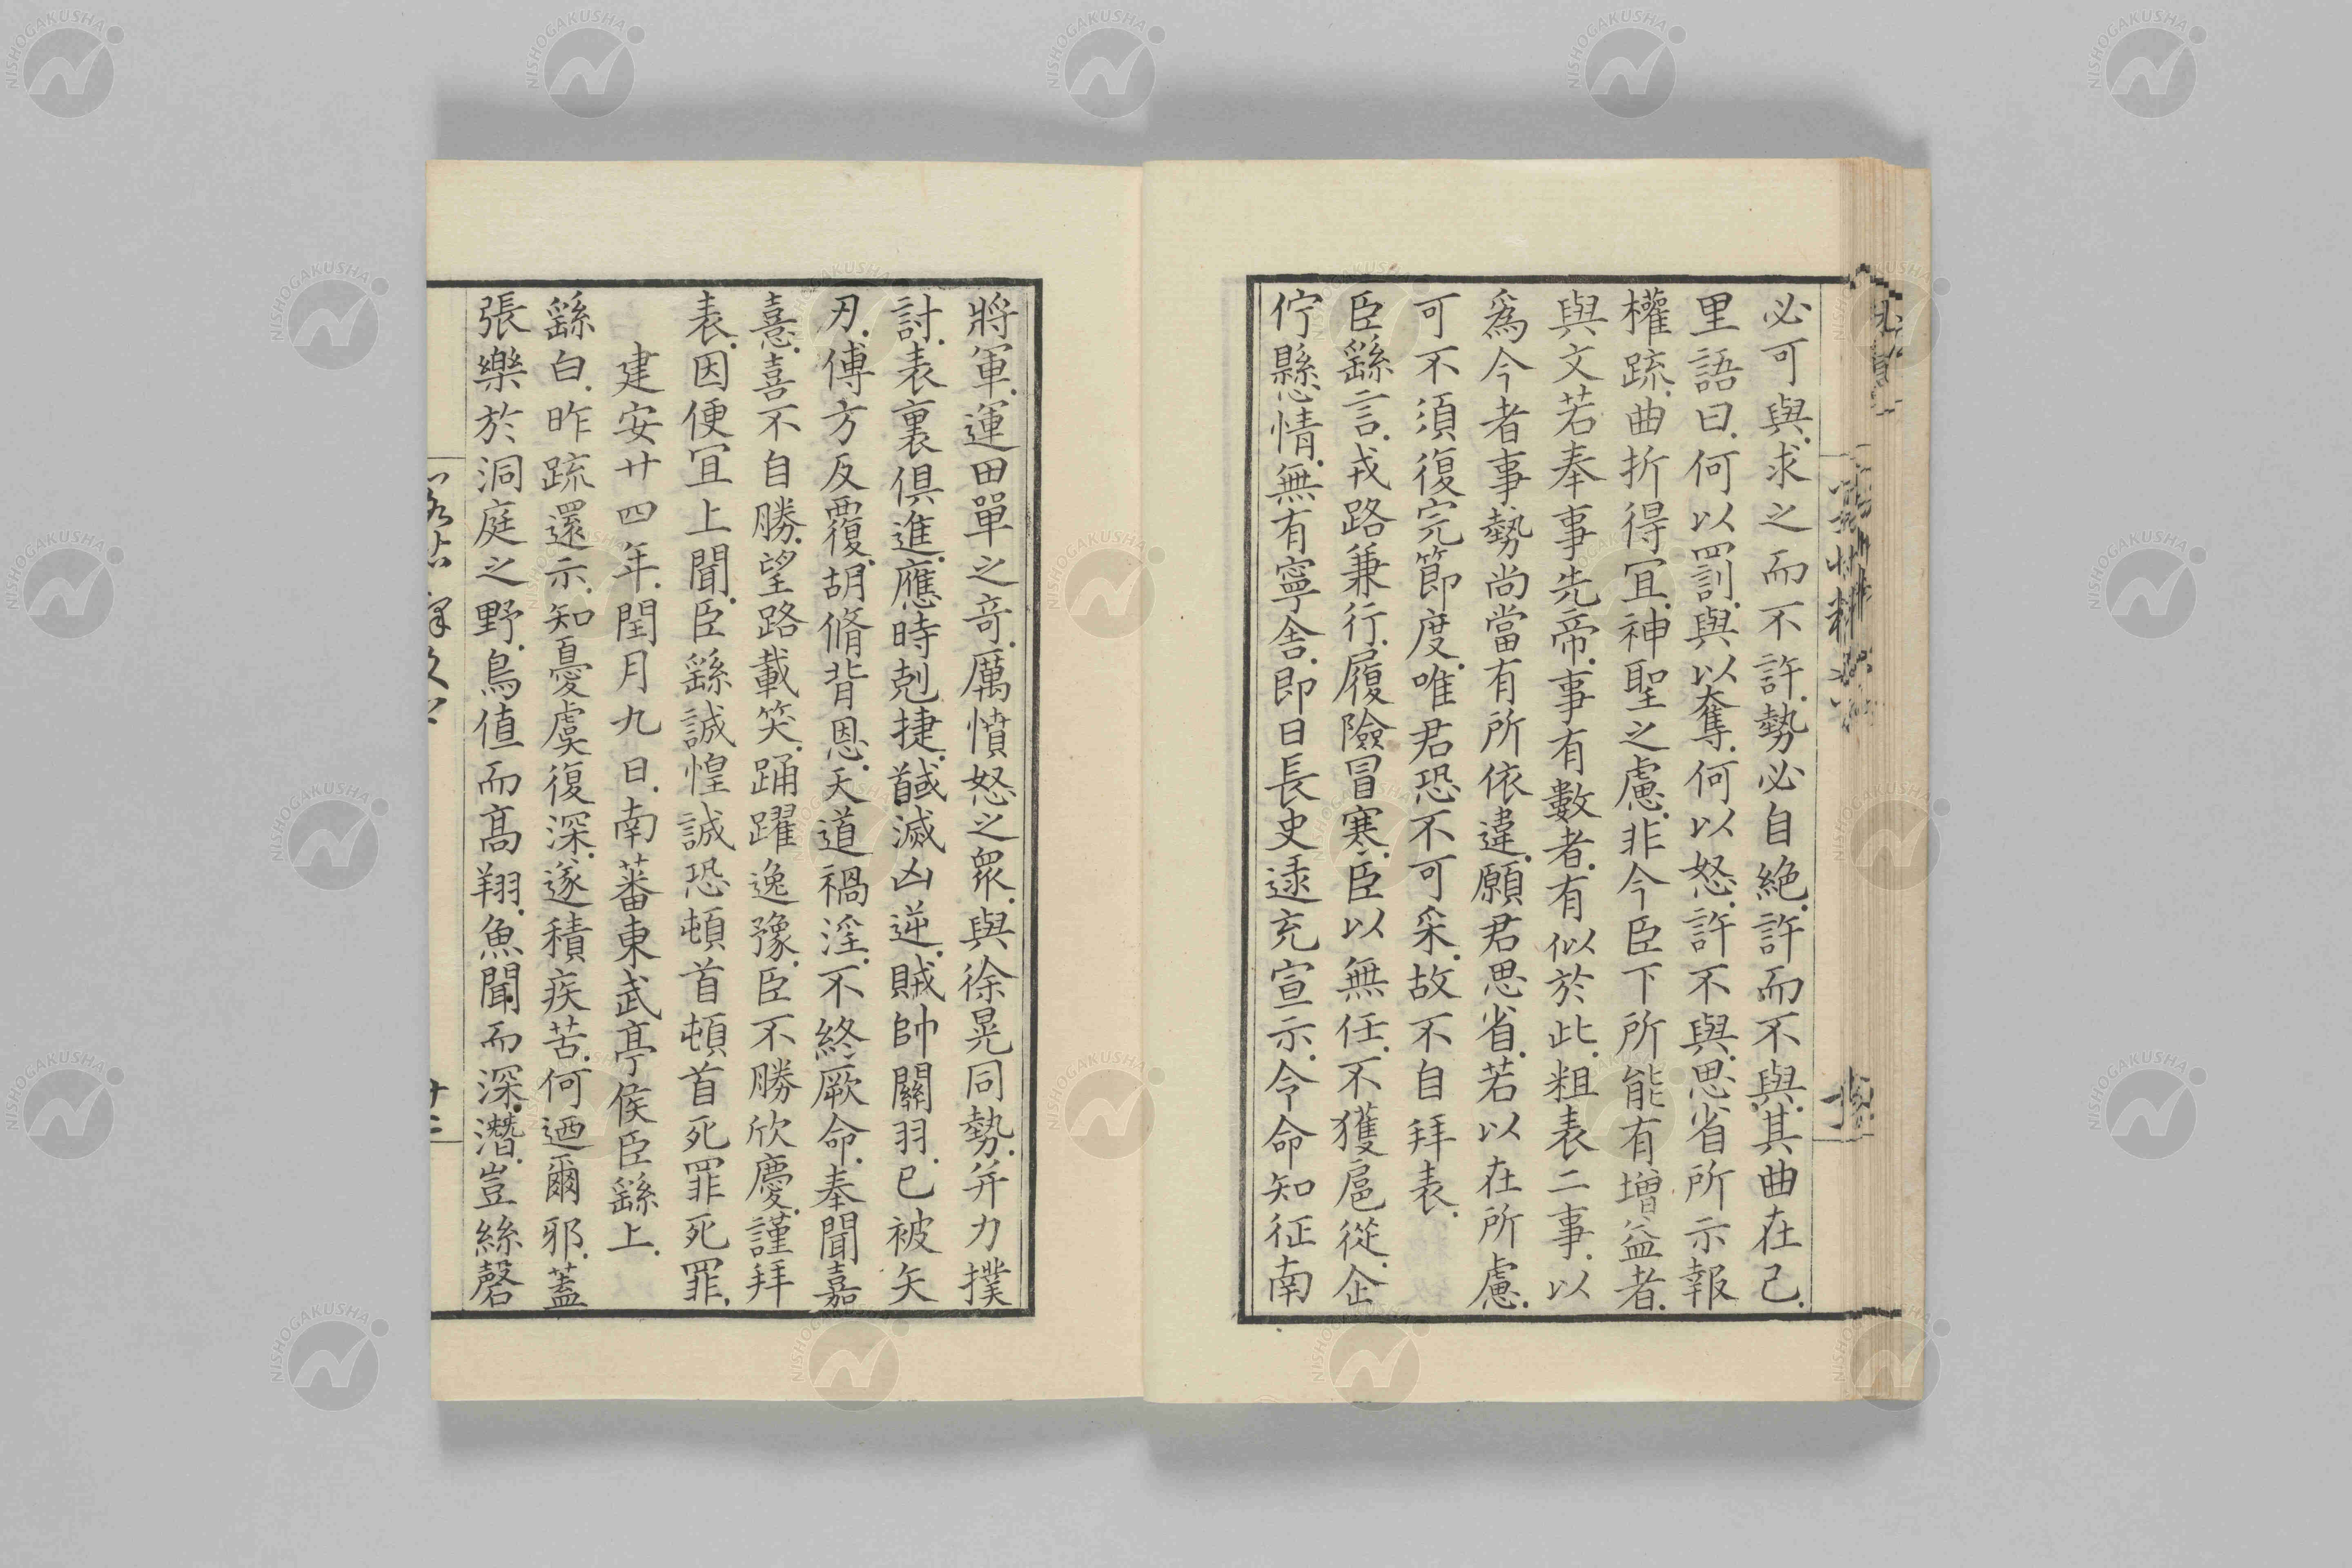 必可與.求之而不許.勢必自絶.許而不與.其曲在己.
里語曰.何以罰.與以奪.何以怒.許不與.思省所示報
權䟽.曲折得冝.神聖之慮.非今臣下所能有增益者.
與文若奉事先帝.事有數者.有似於此.粗表二事.以
爲今者事勢尚當有所依違.願君思省.若以在所慮.
可不須復完節度.唯君恐不可采.故不自拜表.
臣繇言.戎路兼行.履險冒寒.臣以無任.不獲扈從.企
佇懸情.無有寧舍.即日長史逵充宣示.令命知征南
將軍.運田單之奇.厲憤怒之衆.與徐晃同勢.并力撲
討.表裏俱進.應時剋捷.馘滅凶逆.賊帥關羽.已被矢
刃.傅方反覆.胡脩背恩.天道禍淫.不終厥命.奉聞嘉
憙.喜不自勝.望路載笑.踊躍逸豫.臣不勝欣慶.謹拜
表.因便冝上聞.臣繇誠惶誠恐頓首頓首死罪死罪.
建安廿四年.閏月九日.南蕃東武亭侯臣繇上.
繇白.昨䟽還示.知憂虞復深.遂積疾苦.何迺爾邪.蓋
張樂於洞庭之野.鳥值而高翔.魚聞而深潛.豈絲磬